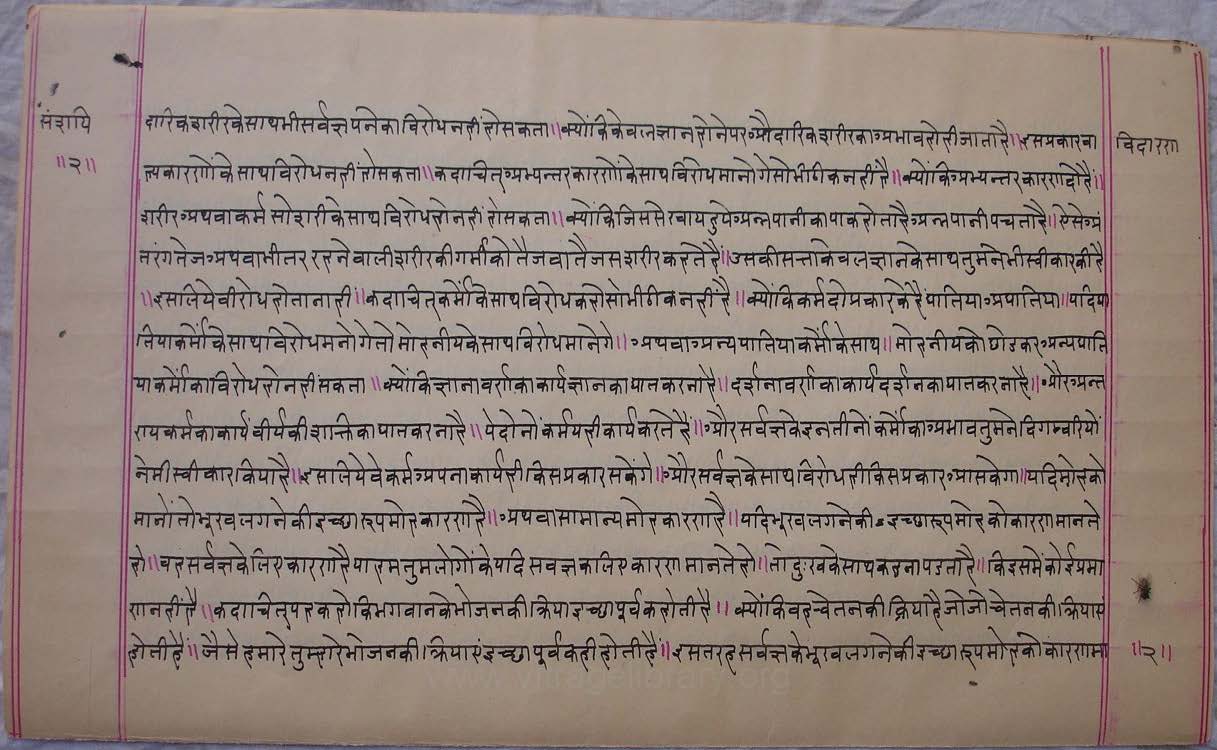 संशयि
॥२॥
दारिक शरीर के साथ भी सर्वज्ञ पने का विरोध नहीं हो सकता॥ क्योंकि केवलज्ञान होने पर औदारिक शरीर का अभाव हो ही जाता है॥ इस प्रकार वा
ह्य कारणों के साथ विरोध नहीं हो सकता॥ कदाचित् अभ्यन्तर कारणों के साथ विरोध मानोगे सो भी ठीक नहीं है॥ क्योंकि अभ्यन्तर कारण दो हैं॥
शरीर अथवा कर्म सो शरी के साथ विरोध हो नहीं हो सकता॥ क्योंकि जिससे खाय हुये अन्न पानी का पाक होता है अन्न पानी पचता है॥ ऐसे अं
तरंग तेज अथवा भीतर रहने वाली शरीर की गर्मी को तैज वा तैजस शरीर कहते हैं॥ उसकी सत्ता केवलज्ञान के साथ तुमने भी स्वीकार की है
॥ इसलिये वीरोध होता नाहीं॥ कदाचित् कर्मों के साथ विरोध कहो सो भी ठीक नहीं है॥ क्योंकि कर्म दो प्रकार के हैं घातिया अघातिया॥ यदि घा
तिया कर्मों के साथ विरोध मनोगे तो मोहनीय के साथ विरोध मानेगे॥ अथवा अन्य घातिया कर्मों के साथ॥ मोहनीय को छोडकर अन्य घाति
या कर्मों का विरोध हो नहीं सकता॥ क्योंकि ज्ञानावर्ण का कार्य ज्ञान का घात करना है॥ दर्शनावर्ण का कार्य दर्शन का घात करना है॥ और अन्त
राय कर्म का कार्य वीर्य की शक्ति का घात करना है॥ ये दोनों कर्म यही कार्य करते हैं॥ और सर्वज्ञ के इन तीनों कर्मों का अभाव तुमने दिगम्बरियों
ने भी स्वीकार किया है॥ इसलिये वे कर्म अपना कार्य ही किस प्रकार सकेंगे॥ और सर्वज्ञ के साथ विरोध ही किस प्रकार आ सकेगा॥ यदि मोह को
मानों तो भूख लगने की इच्छा रूप मोह कारण है॥ अथवा सामान्य मोह कारण है॥ यदि भूख लगने की इच्छा रूप मोह को कारण मानते
हो॥ वह सर्वज्ञ के लिए कारण है या हम तुम लोगों के यदि सवज्ञ क लिए कारण मानते हो॥ तो दुःख के साथ कहना पडता है॥ कि इसमें कोई प्रमा
ण नहीं है॥ कदाचित् यह कहो कि भगवान के भोजन की क्रिया इच्छा पूर्वक होती है॥ क्योंकि वह चेतन की क्रिया है जो जो चेतन की क्रियाएं
होती हैं॥ जैसे हमारे तुम्हारे भोजन की क्रियाएं इच्छा पूर्वक ही होती हैं॥ इस तरह सर्वज्ञ के भूख लगने की इच्छा रूप मोह को कारण मा
विदारण
॥२॥
www.vitragelibrary.org